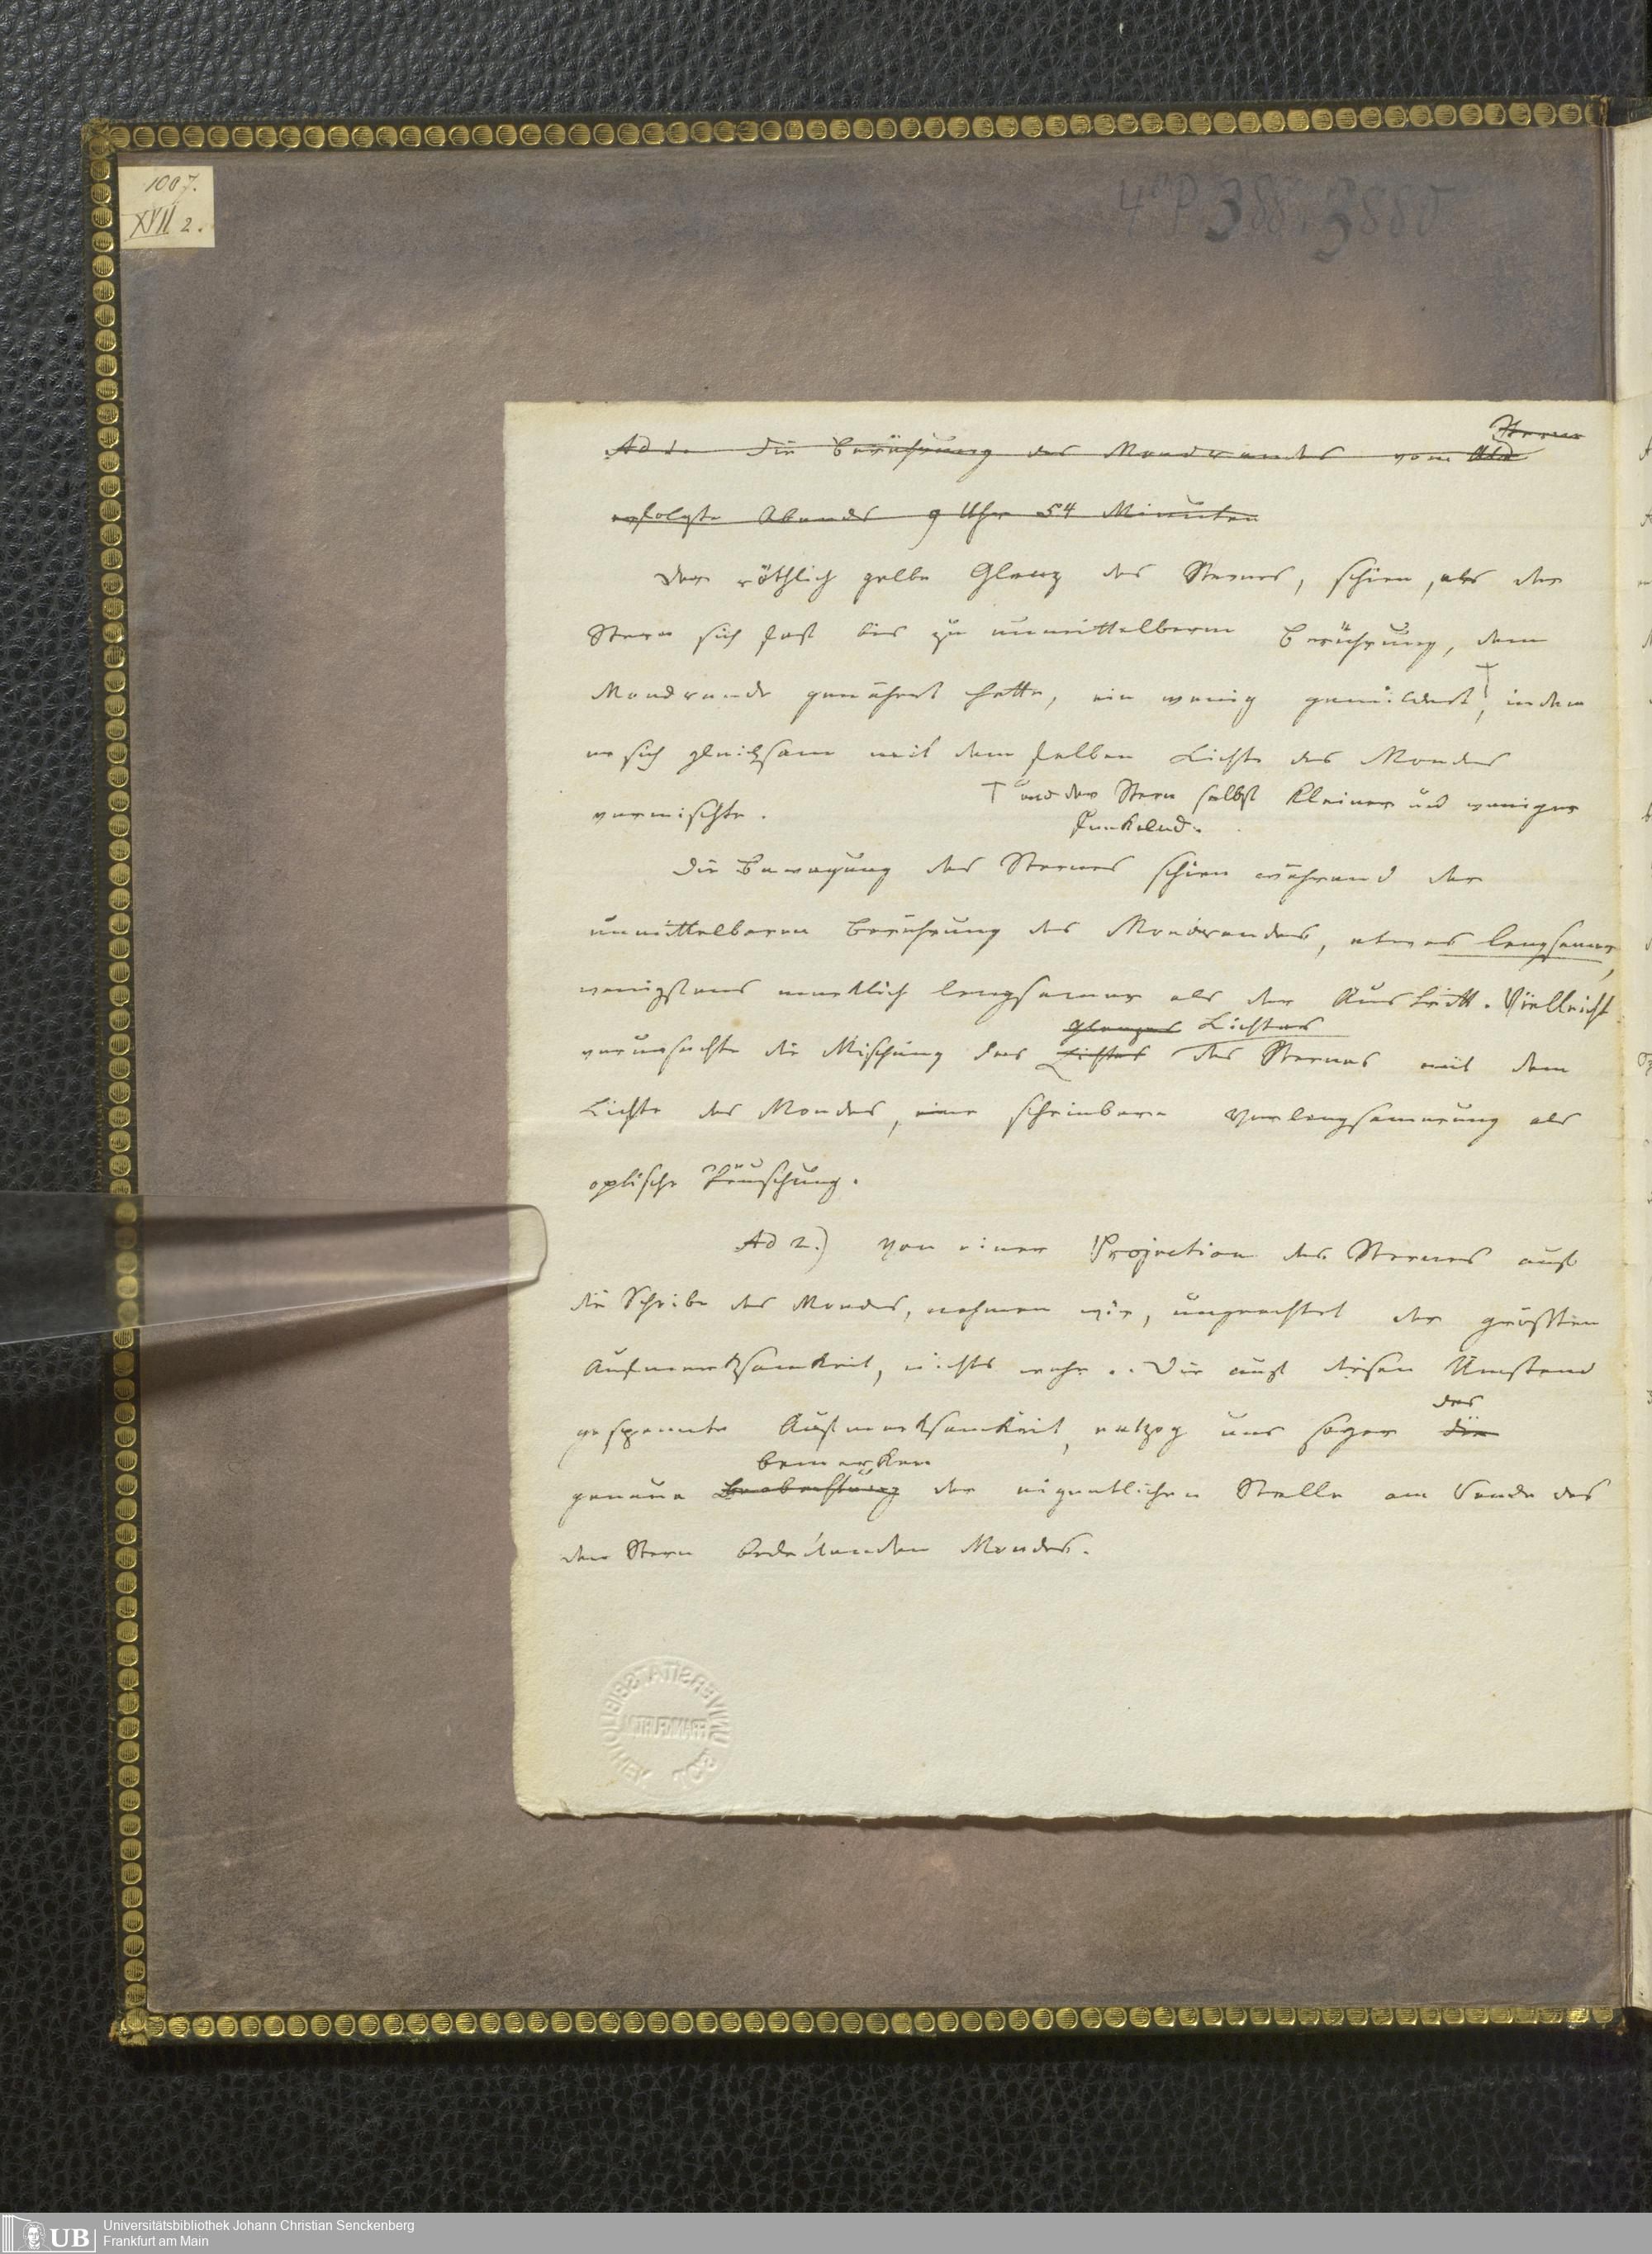 1007.
XVII 2.
4° P 388. 3880
Ad 1. Die Berührung des Mondrandes vom Ald Sterne
erfolgte Abends 9 Uhr 54 Minuten
Der röthlich gelbe Glanz des Sternes, schien, als der
Stern sich fast bis zu unmittelbarem Berührung, dem
Mondrande genähert hatte, ein wenig gemildert †, indem
er sich gleichsam mit dem selben Lichte des Mondes
vermischte.
† und der Stern selbst kleiner und weniger
funkelnd.
Die Bewegung des Sternes schien während der
unmittelbaren Berührung des Mondrandes, etwas langsamer,
wenigstens merklich langsamer als der Austritt. Vielleicht
Glanzes Lichtes
verursachte die Mischung des Lichtes des Sternes mit dem
Lichte des Mondes, eine scheinbare Verlangsamerung als
optische Täuschung.
Ad 2.) Von einer Projection des Sternes auf
die Scheibe des Mondes, nahmen wir, ungeachtet der größten
Aufmerksamkeit, nichts wahr. Die auf diesen Umstand
das
gespannte Aufmerksamkeit, entzog uns sogar die
bemerken
genaue Beobachtung der eigentlichen Stelle am Rande des
den Stern bedeckenden Mondes.
UNIVERSITÄTSBIBLIOTHEK
FRANKFURT
UB
Universitätsbibliothek Johann Christian Senckenberg
Frankfurt am Main